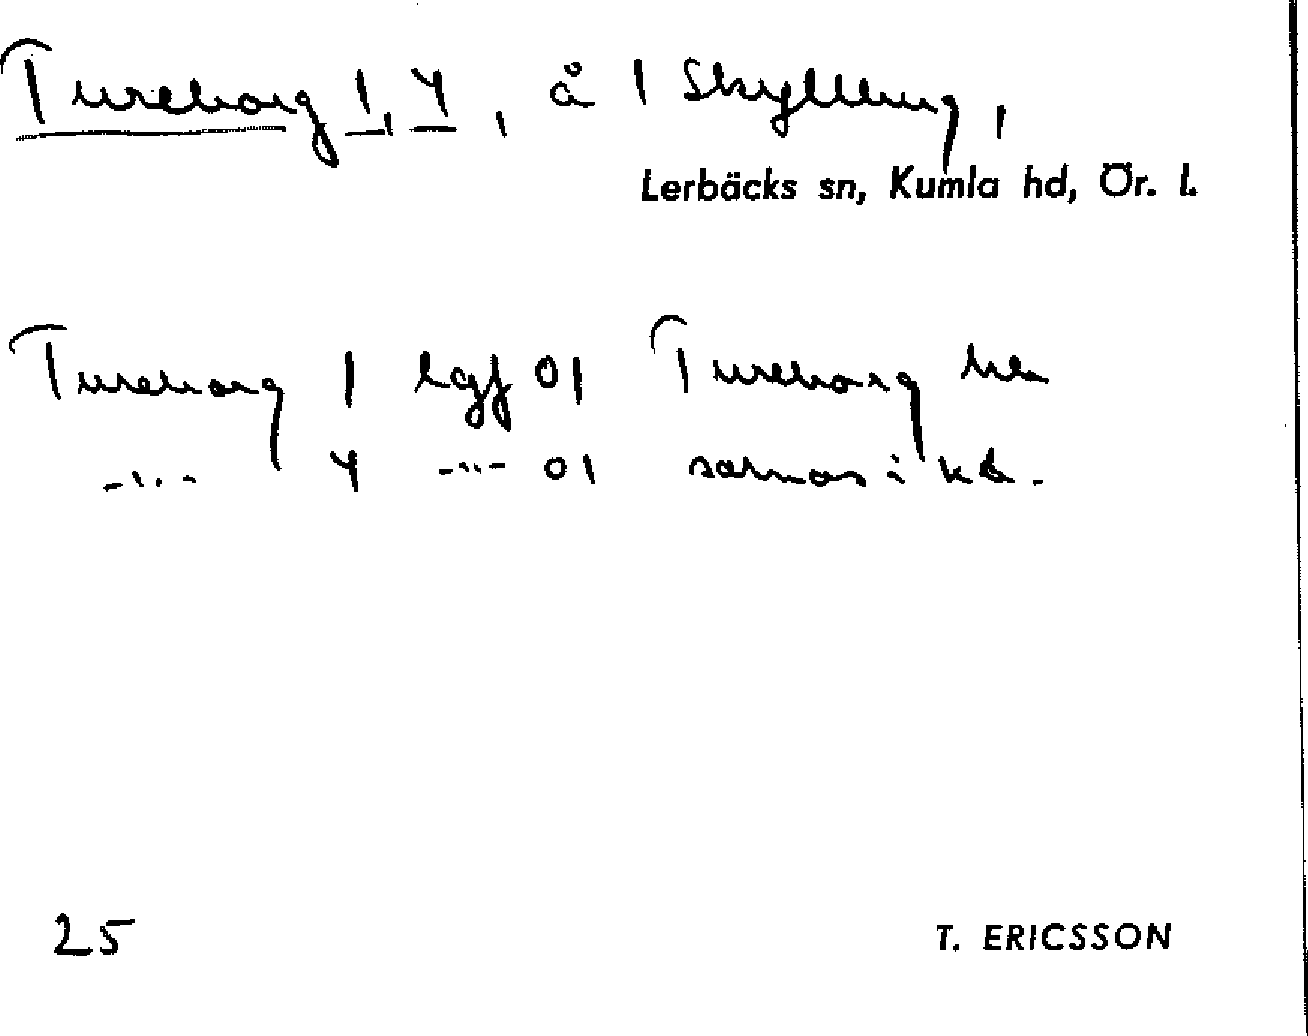 Tureborg 1, 4, å 1 Skyllberg,
Lerbäcks sn, Kumla hd, Ör. l.
Tureborg 1 lgf 01 Tureborg
-"- 4 -"- 01 saknas i kb.
25
T. ERICSSON